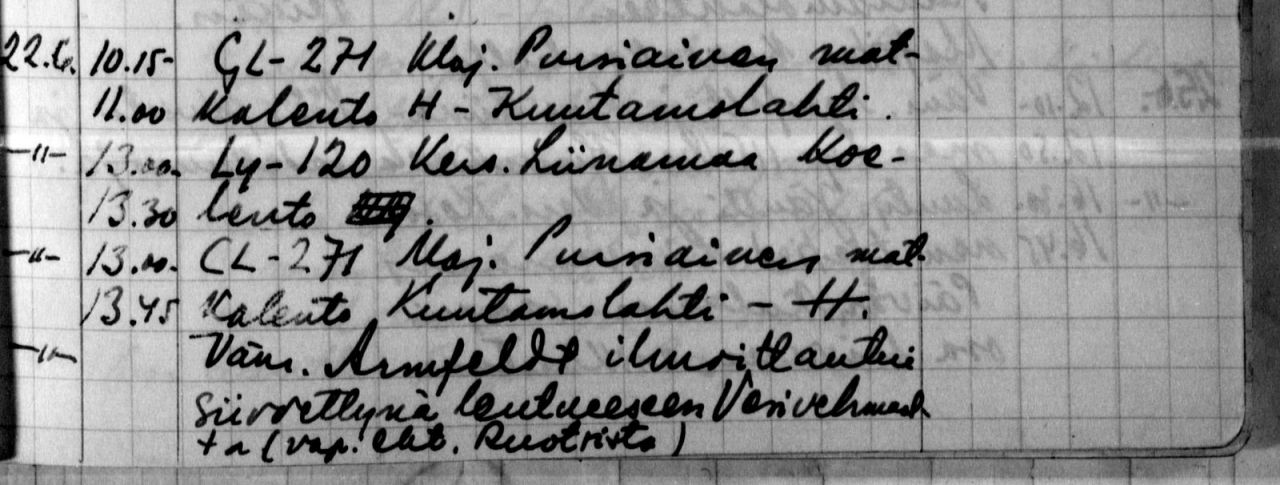 22.6. 10.15- CL-271 Maj. Pursiainen mat-
11.00 kalento H - Kuutamolahti.
-"- 13.00- Ly-120 Kers. Liinamaa koe-
13.30 lento
-"- 13.00- CL-271 Maj. Pursiainen mat-
13.45 kalento Kuutamolahti - H.
-"- Vänr. Armfeldt ilmoittautui
siirrettynä lentueeseen Vesivehmaal-
ta (vap. eht. Ruotsista)